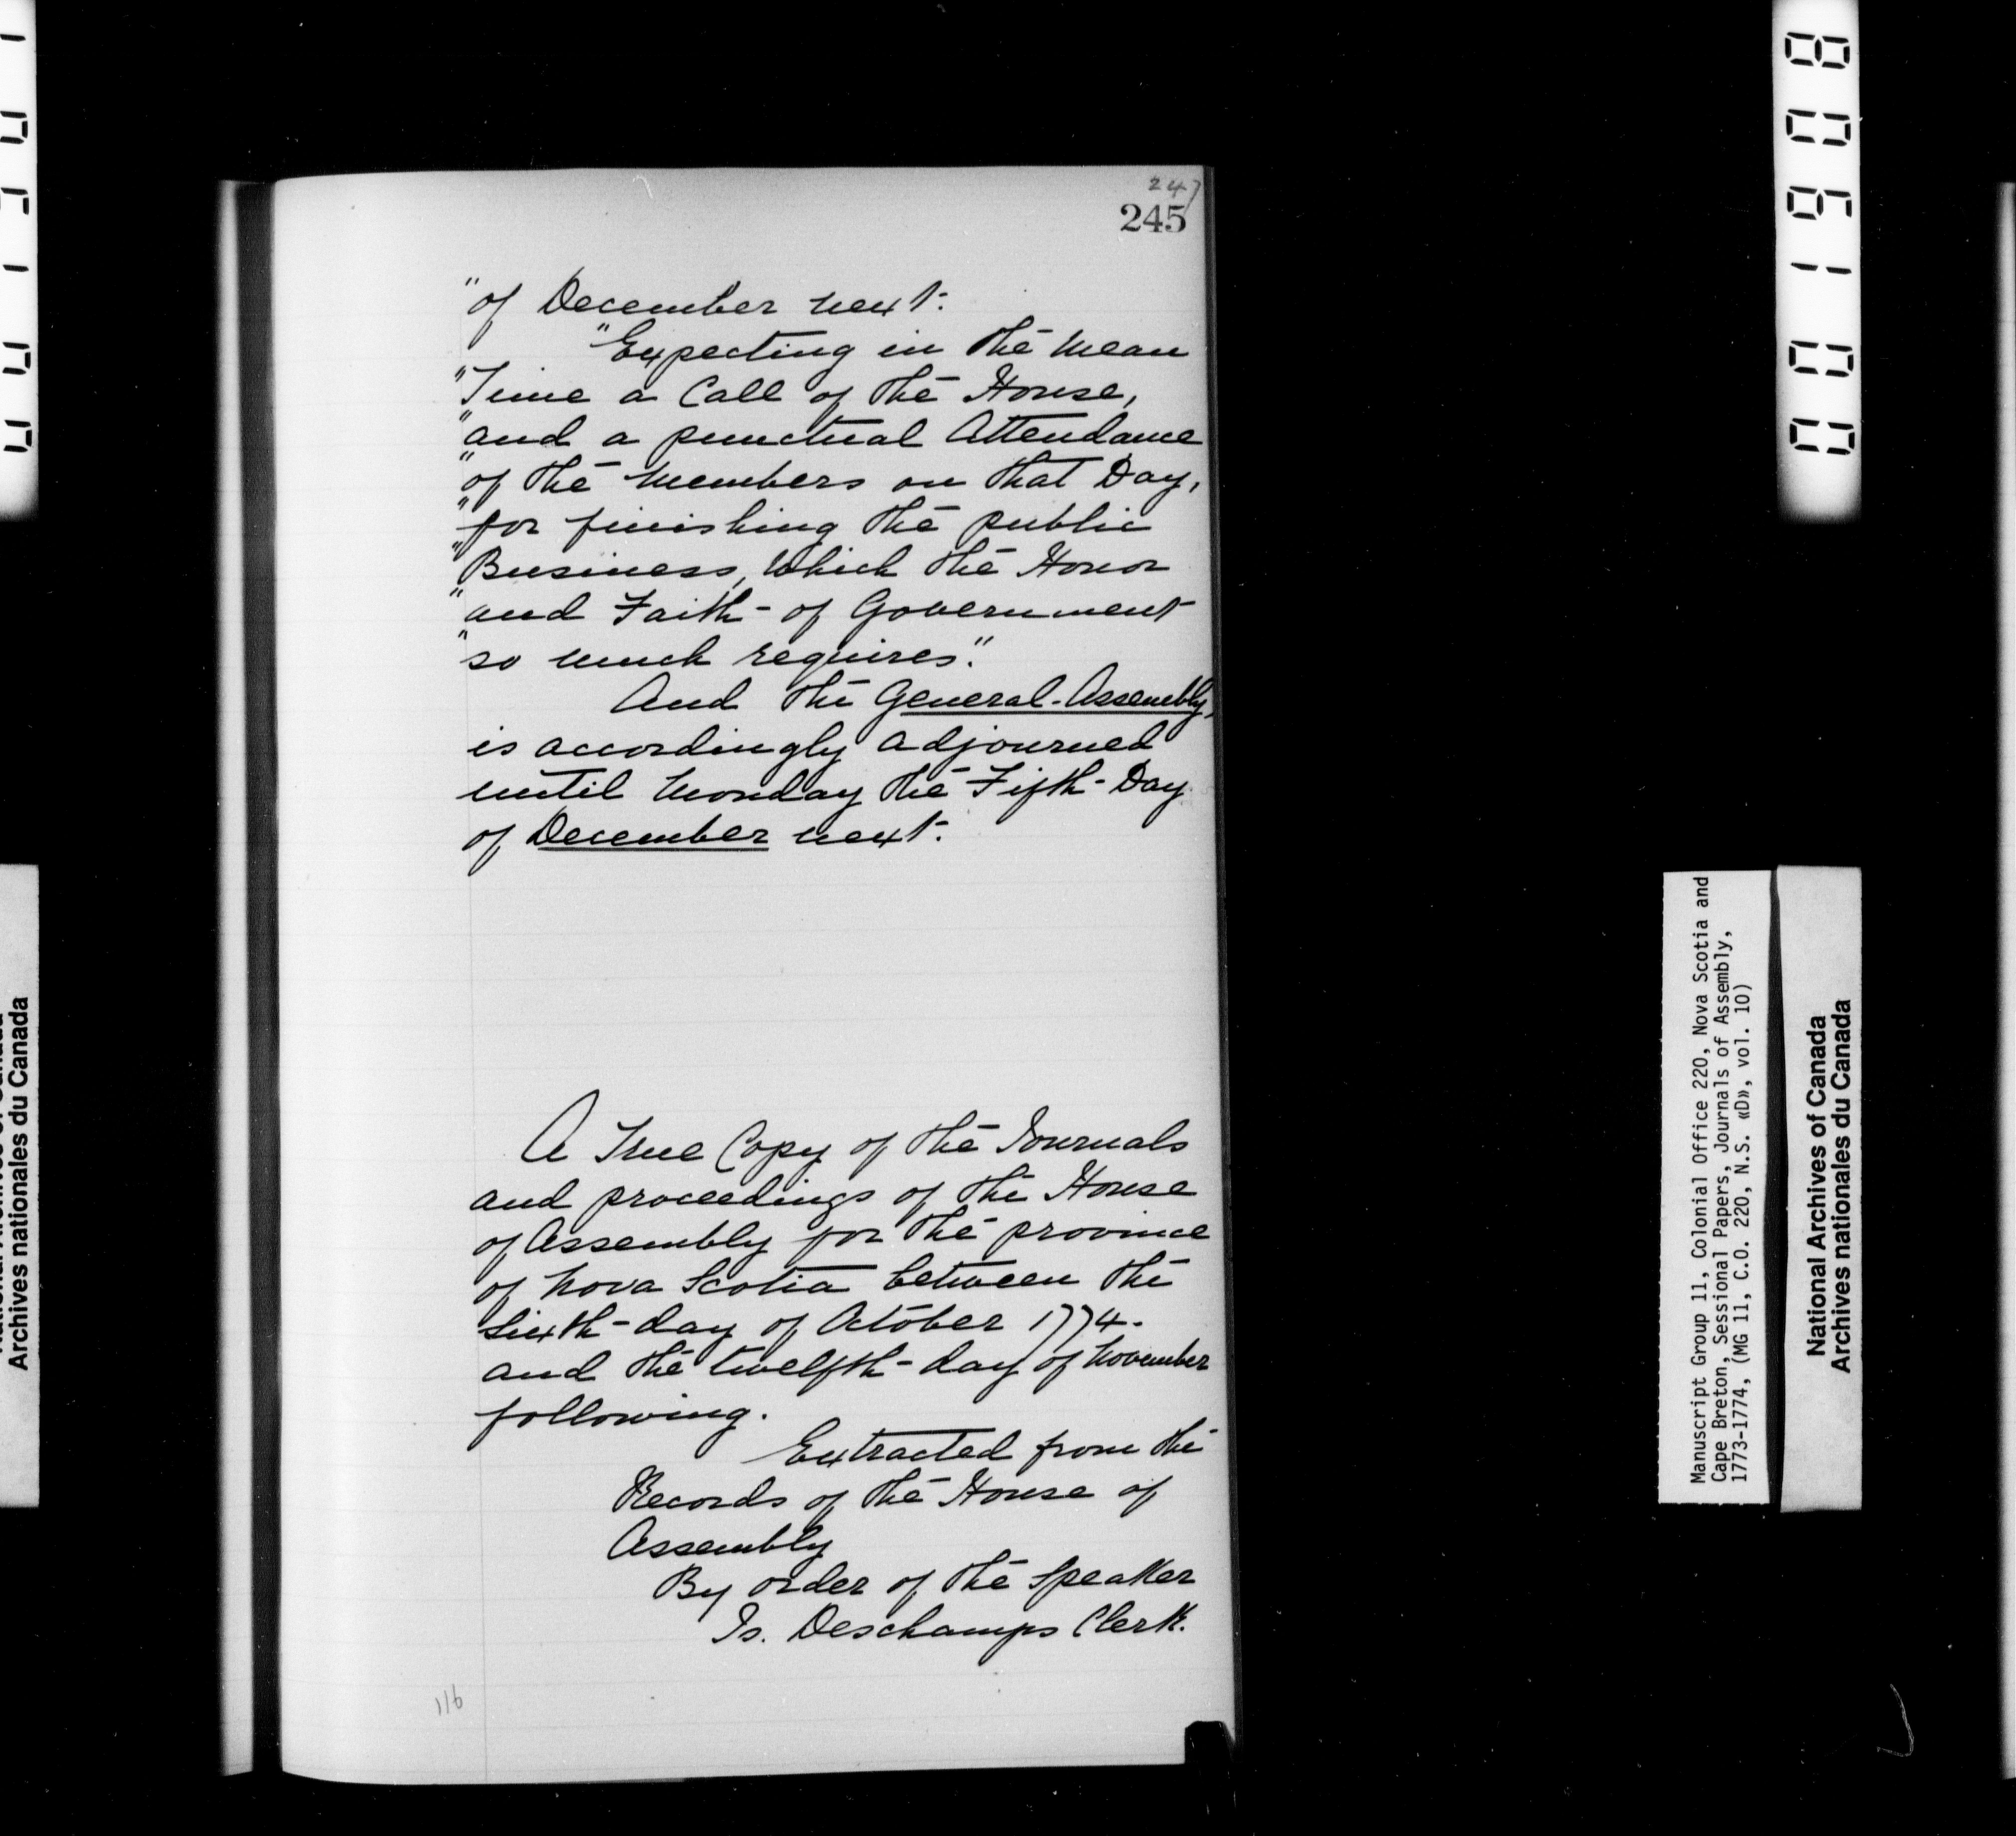 247
245
"of December next.
"Expecting in the mean
"Time a Call of the House,
"and a punctual Attendance
"of the Members on that Day,
"for finishing the public
"Business, which the Honor
"and Faith of Government
"so much requires."
And the General Assembly,
is accordingly adjourned
until Monday the Fifth Day
of December next.
A True Copy of the Journals
and proceedings of the House
of Assembly for the province
of Nova Scotia between the
Sixth day of October 1774.
and the twelfth day of November
following.
Extracted from the
Records of the House of
Assembly
By order of the Speaker
Is. Deschamps Clerk.
116
001908
Manuscript Group 11, Colonial Office 220, Nova Scotia and
Cape Breton, Sessional Papers, Journals of Assembly,
1773-1774, (MG 11, C.O. 220, N.S. «D», vol. 10)
National Archives of Canada
Archives nationales du Canada
Archives nationales du Canada